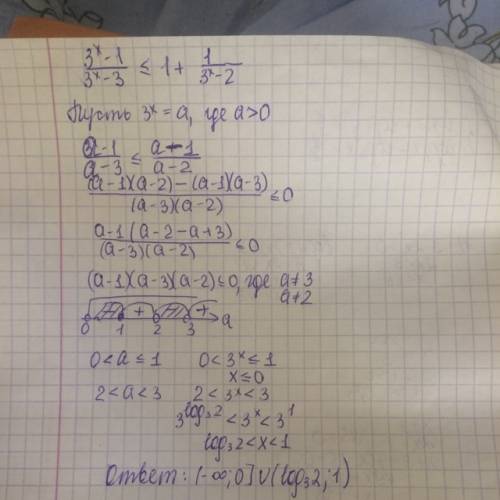 (3^x - 1)/(3^x - 3) ≤ 1 + 1/(3^x - 2)
Пусть 3^x = a, где a>0
(a-1)/(a-3) ≤ (a-1)/(a-2)
((a-1)(a-2) - (a-1)(a-3))/((a-3)(a-2)) ≤ 0
(a-1(a-2-a+3))/((a-3)(a-2)) ≤ 0
(a-1)(a-3)(a-2) ≤ 0, где a≠3
a≠2
+ +
0 1 2 3 a
0 < a ≤ 1 0 < 3^x ≤ 1
x ≤ 0
2 < a < 3 2 < 3^x < 3
3^(log₃2) < 3^x < 3^1
log₃2 < x < 1
Ответ: (-∞; 0] ∪ (log₃2; 1)